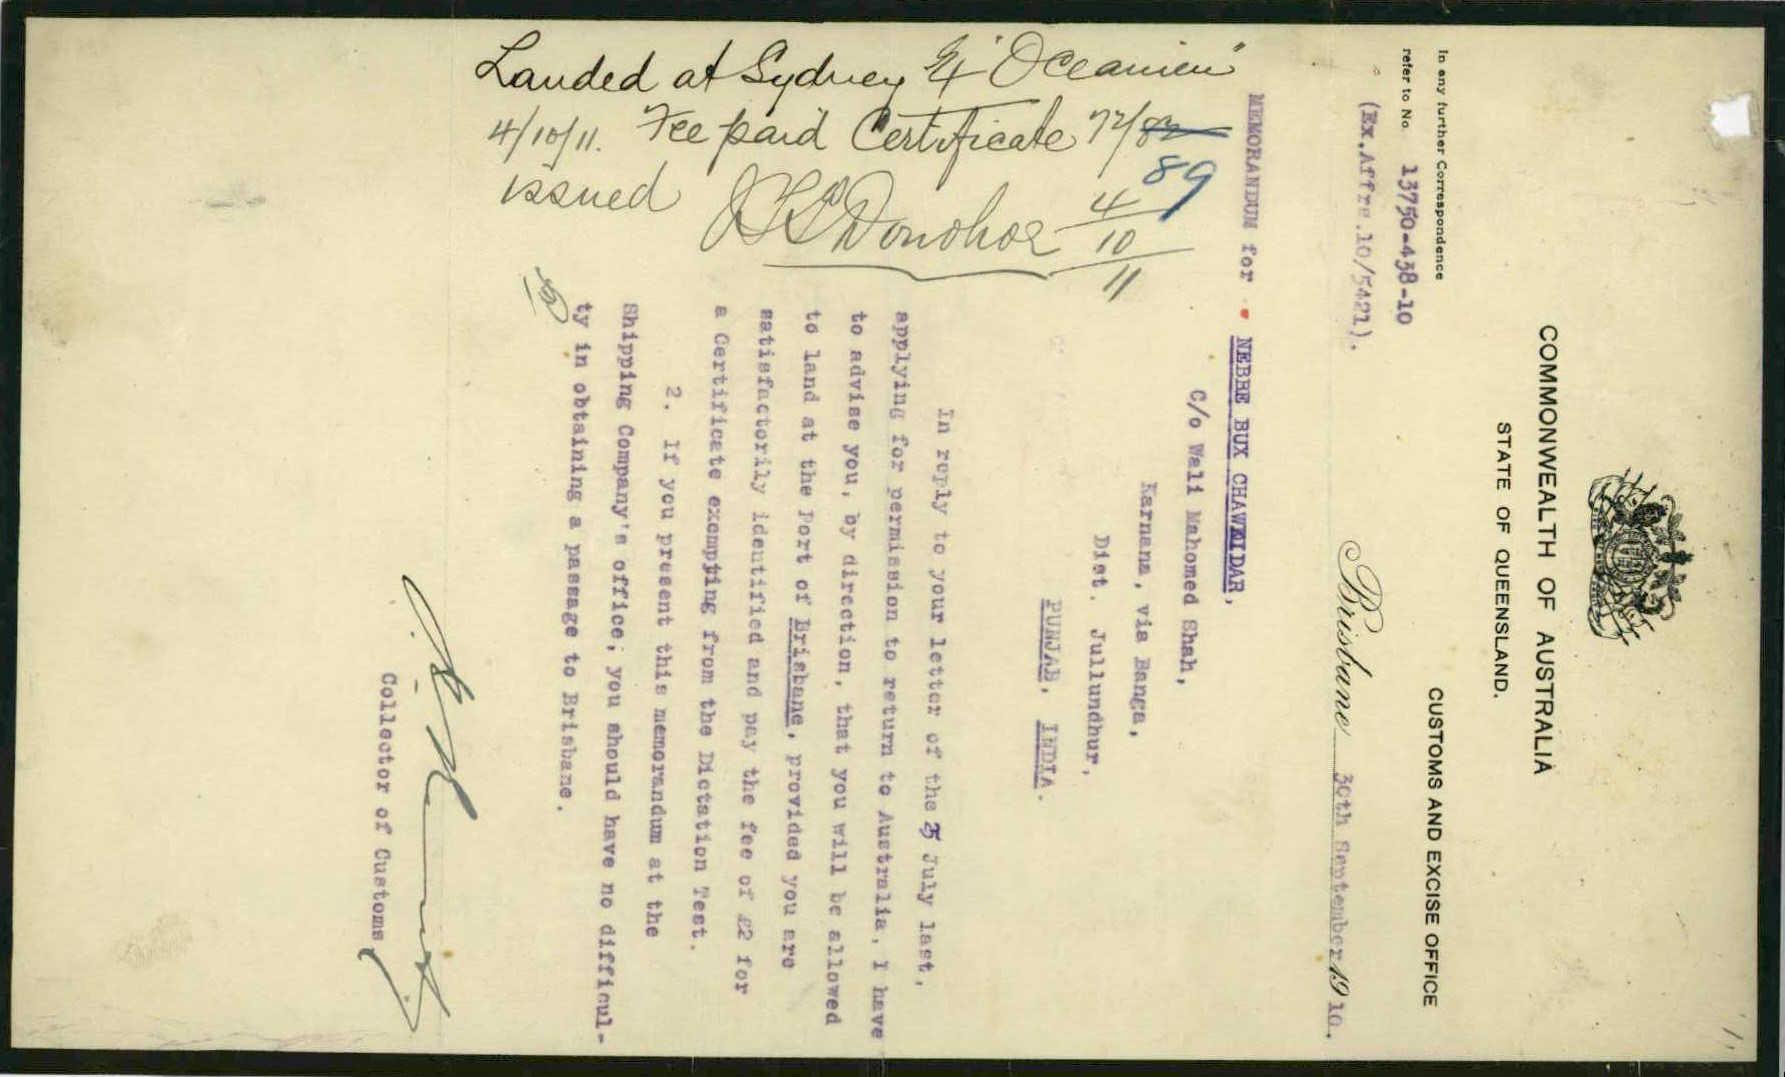 COMMONWEALTH OF AUSTRALIA
STATE OF QUEENSLAND.
In any further Correspondence
refer to No. 13750-438-10
(Ex.Affrs.10/5421).
CUSTOMS AND EXCISE OFFICE
Brisbane 30th September 19 10.
MEMORANDUM for
NEBHE BUX CHAWKIDAR,
C/o Wali Mahomed Shah,
Karnana, via Banga,
Dist. Jullundhur,
PUNJAB, INDIA.
In reply to your letter of the 25 July last,
applying for permission to return to Australia, I have
to advise you, by direction, that you will be allowed
to land at the Port of Brisbane, provided you are
satisfactorily identified and pay the fee of £2 for
a Certificate exempting from the Dictation Test.
2. If you present this memorandum at the
Shipping Company's office; you should have no difficul-
ty in obtaining a passage to Brisbane.
Collector of Customs
Landed at Sydney "Oceanien"
4/10/11. Fee paid Certificate 72/82
89
issued Donohoe 4/10/11